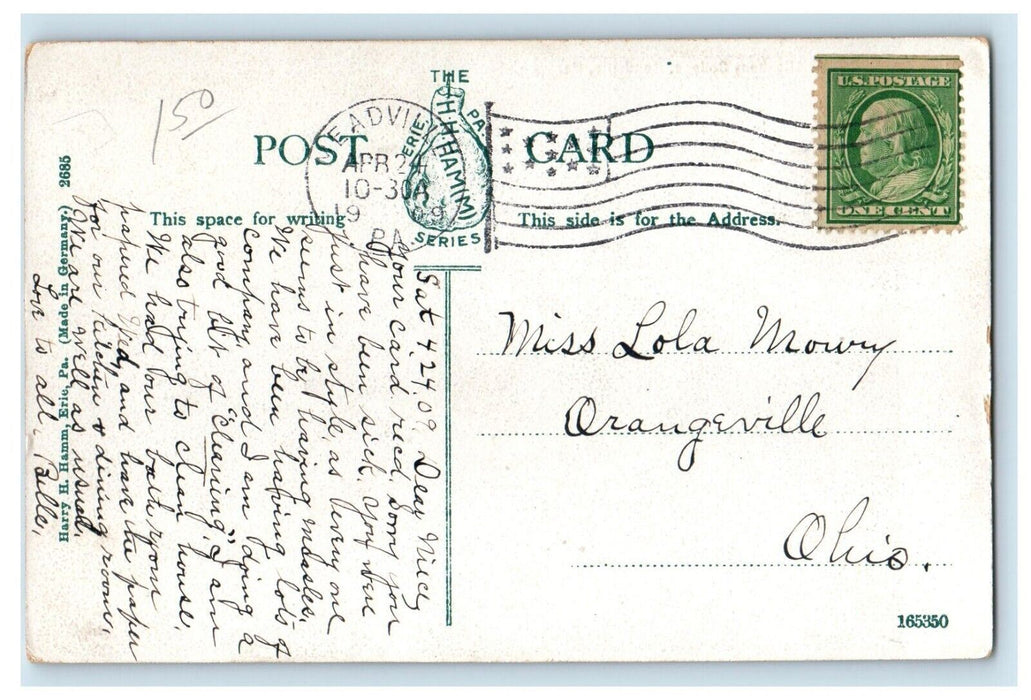 150
THE
HHHHAMM
ERIE PA.
SERIES
POST CARD
MEADVILLE
APR 24
10-30A
1909
PA.
U.S. POSTAGE
ONE CENT
This space for writing
This side is for the Address.
Sat 4.24.09, Dear Niecy
Your card recd, sorry you
have been sick. You were
just in style, as every one
seems to be having measles.
We have been having lots of
company and I am doing a
good bit of "Cleaning," I am
also trying to clean house,
We had our bath room
papered Wed, and have the paper
for our kitchen & dining room,
We are well as usual,
Love to all, Belle,
Miss Lola Mowry
Orangeville
Ohio.
Harry H. Hamm, Erie, Pa. (Made in Germany.) 2685
165350